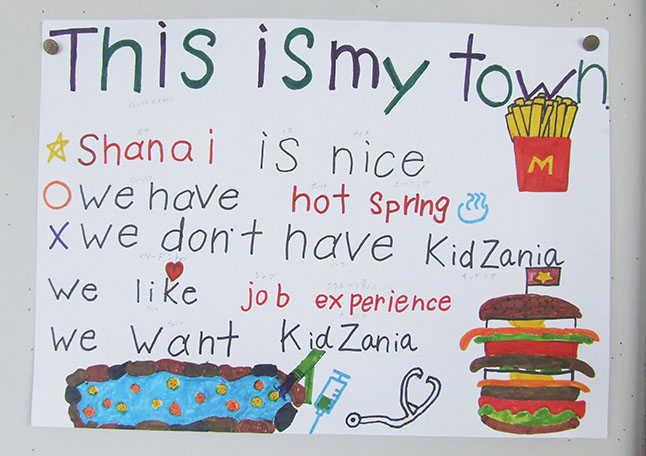 This is my town
Shanai is nice
We have hot spring
We don't have KidZania
We like job experience
We want KidZania
M